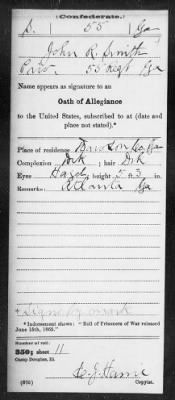 Confederate.
S. 55 Ga
John R. Smith
Pvt. 55 Regt Ga
Name appears as signature to an
Oath of Allegiance
to the United States, subscribed to at (date and
place not stated).*
Place of residence Dawson Co Ga
Complexion Drk ; hair Drk
Eyes Hazel ; height 5 ft. 3 in.
Remarks: Atlanta Ga
Signs by mark
*Indorsement shows: "Roll of Prisoners of War released
June 15th, 1865."
Number of roll:
350; sheet 11
Camp Douglas, Ill.
Copyist.